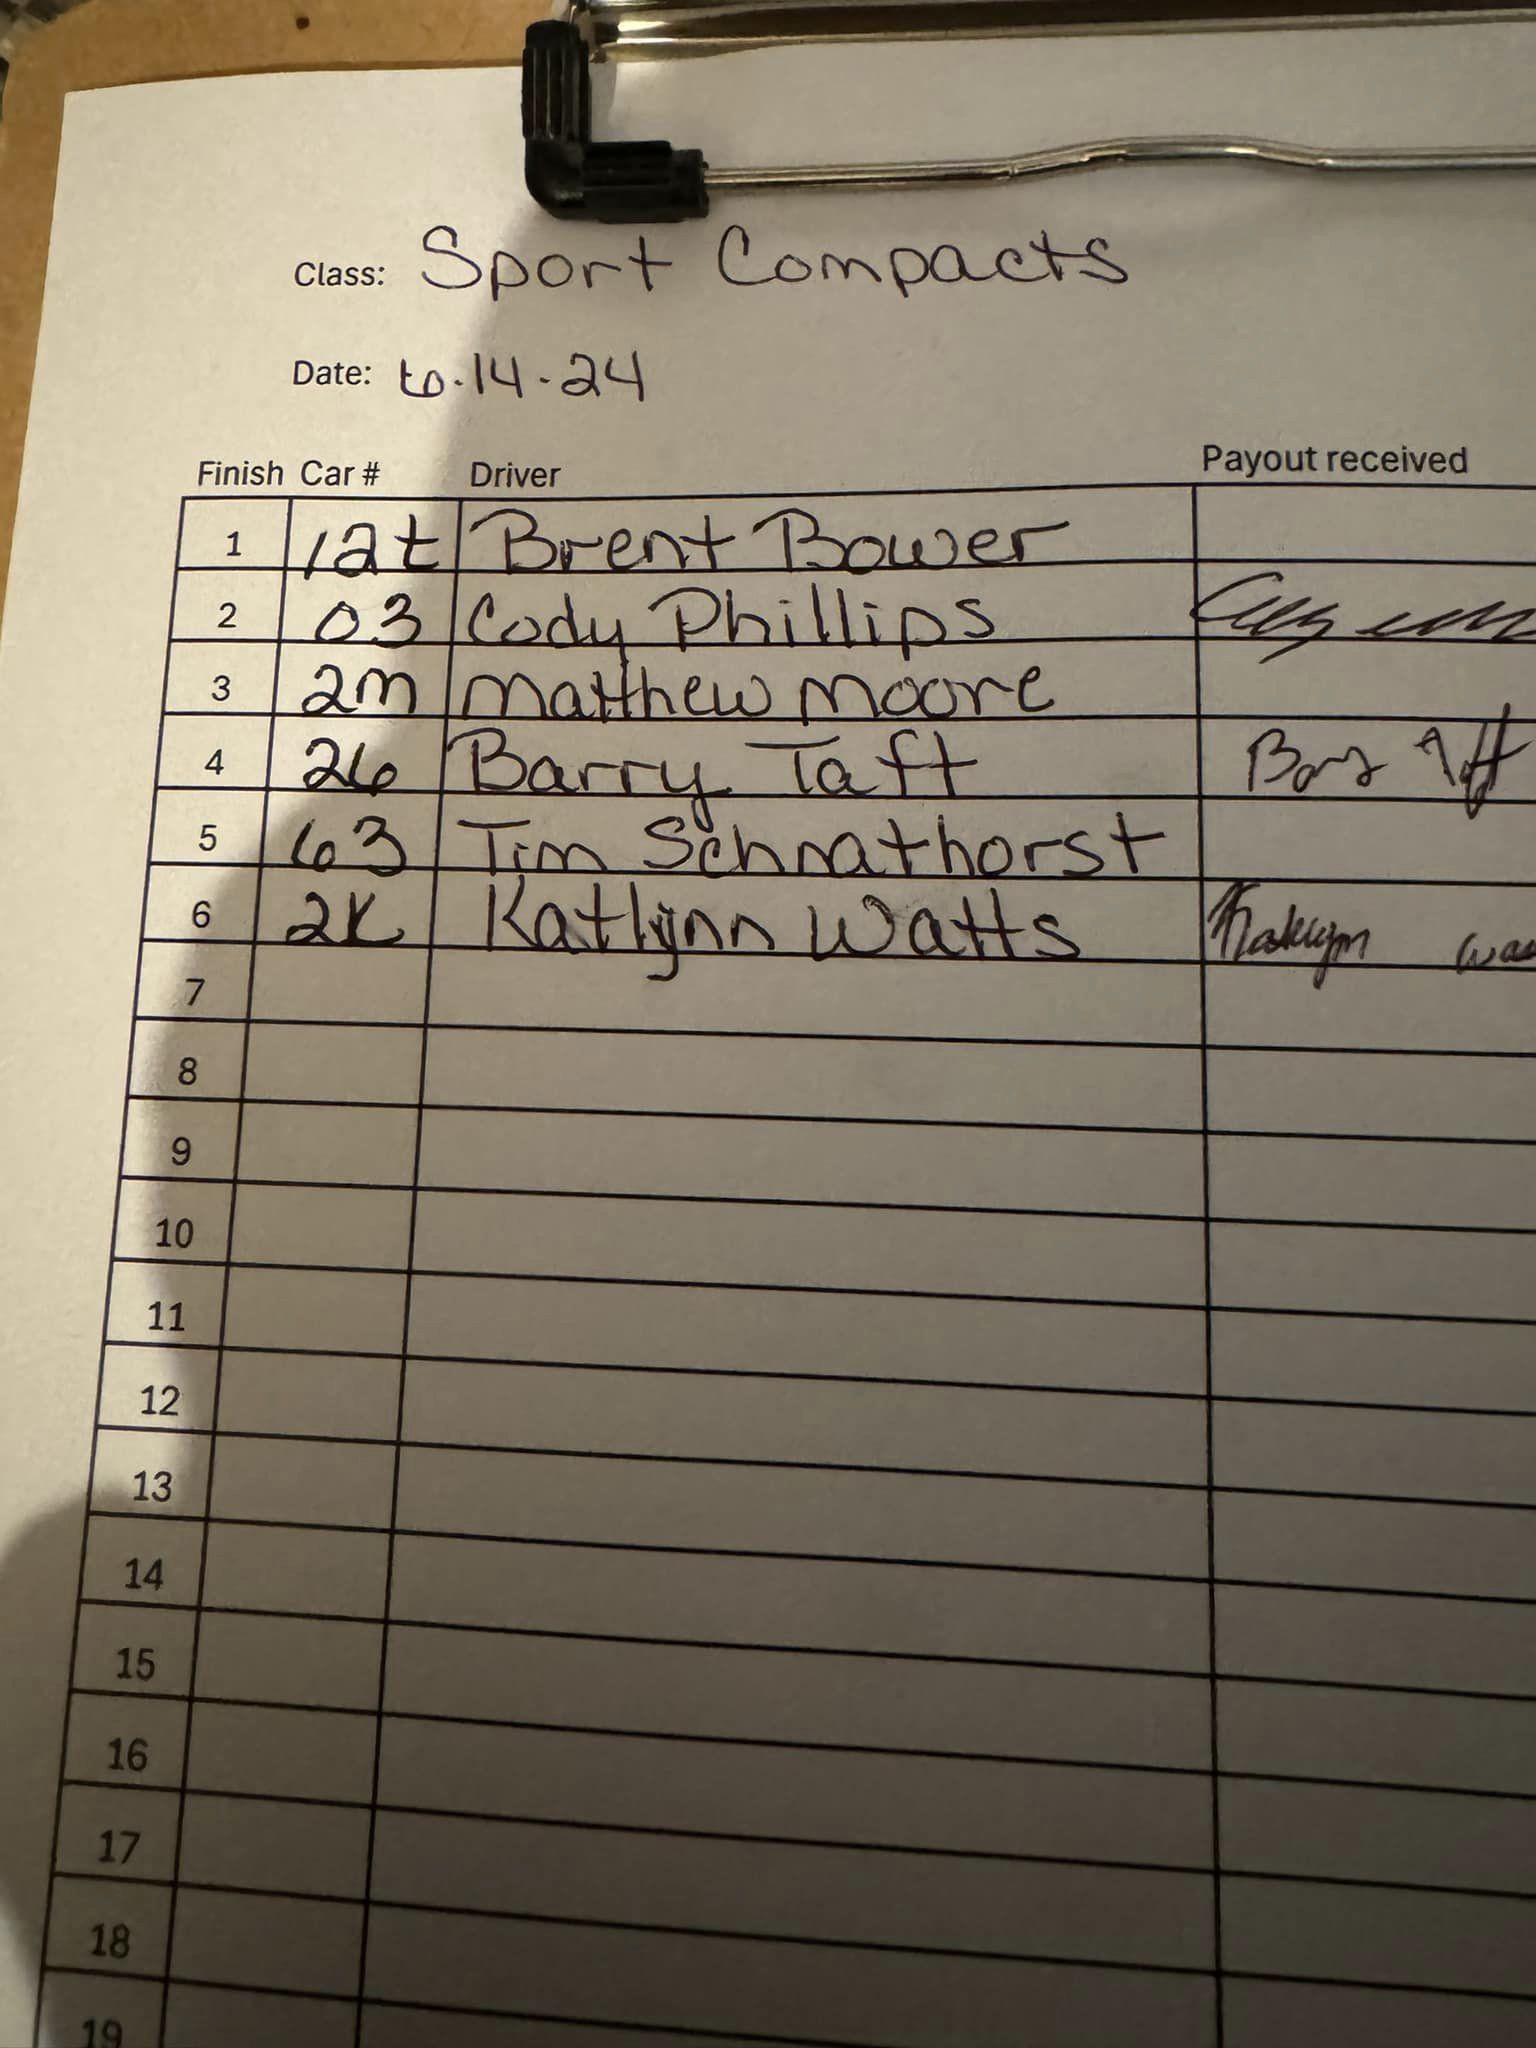 Class: Sport Compacts
Date: 6.14.24
Finish Car # Driver Payout received
1 12t Brent Bower
2 03 Cody Phillips
3 2m Matthew Moore
4 26 Barry Taft
5 63 Tim Schnathorst
6 2K Katlynn Watts
7
8
9
10
11
12
13
14
15
16
17
18
19